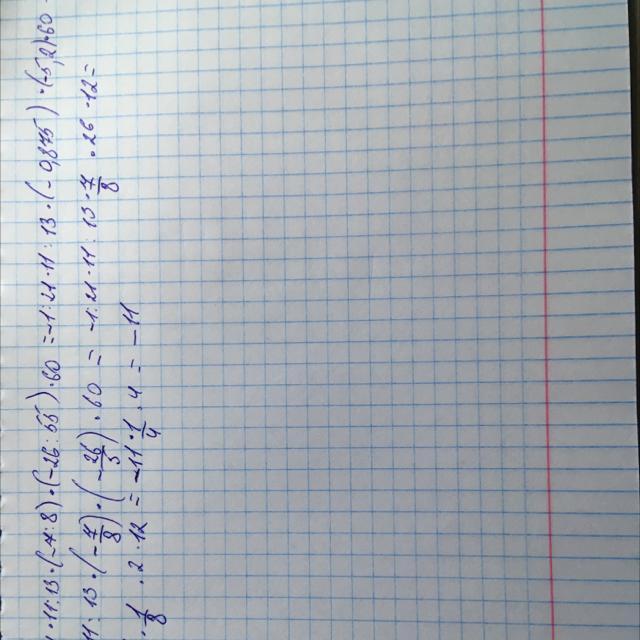 · 11 : 13 · (-7 : 8) · (-26 : 55) · 60 = -1 : 21 · 11 : 13 · (-0,875) · (-5,2) · 60 -
11 : 13 · (-7/8) · (-26/5) · 60 = -1 : 21 · 11 : 13 · 7/8 · 26 · 12 =
· 1/8 · 2 · 12 = -11 · 1/4 · 4 = -11